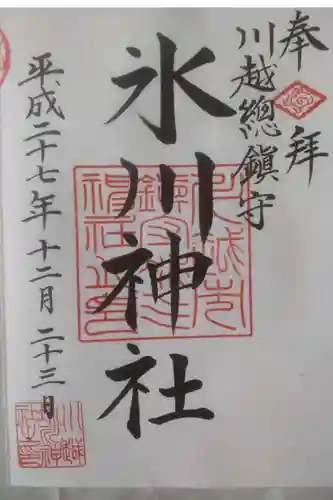 奉拜
川越總鎮守
氷川神社
平成二十七年十二月二十三日